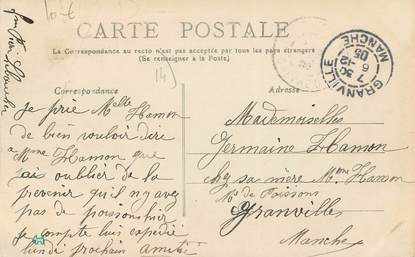 CARTE POSTALE
La Correspondance au recto n'est pas acceptée par tous les pays étrangers
(Se renseigner à la Poste)
Correspondance
Adresse
GRANVILLE
MANCHE
7 30
6 -12
05
14
je prie Melle Hamon
de bien vouloir dire
a Mme Hamon que
jais oublier de la
prevenir qu'il ny avez
pas de poissons hier
je compte luis expedié
lundi prochain amitié
Mademoiselles
Germaine Hamon
chez sa mère Mme Hamon
Mde de Poissons
Granville
Manche